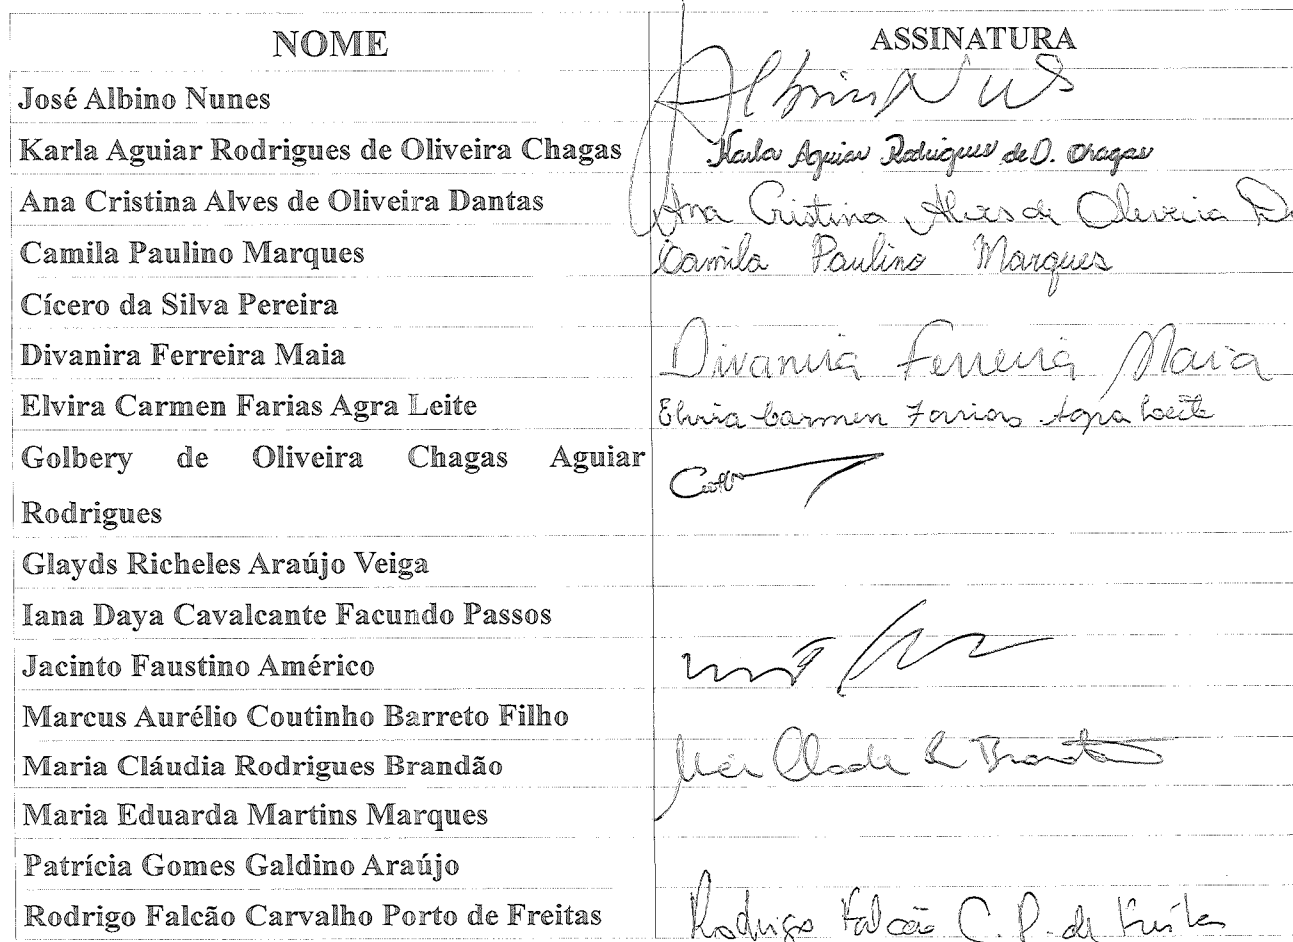 NOME ASSINATURA
José Albino Nunes Albino Nunes
Karla Aguiar Rodrigues de Oliveira Chagas Karla Aguiar Rodrigues de O. Chagas
Ana Cristina Alves de Oliveira Dantas Ana Cristina Alves de Oliveira D.
Camila Paulino Marques Camila Paulino Marques
Cícero da Silva Pereira
Divanira Ferreira Maia Divanira Ferreira Maia
Elvira Carmen Farias Agra Leite Elvira Carmen Farias Agra Leite
Golbery de Oliveira Chagas Aguiar
Rodrigues
Glayds Richeles Araújo Veiga
Iana Daya Cavalcante Facundo Passos
Jacinto Faustino Américo
Marcus Aurélio Coutinho Barreto Filho
Maria Cláudia Rodrigues Brandão
Maria Eduarda Martins Marques
Patrícia Gomes Galdino Araújo
Rodrigo Falcão Carvalho Porto de Freitas Rodrigo Falcão C. P. de Freitas